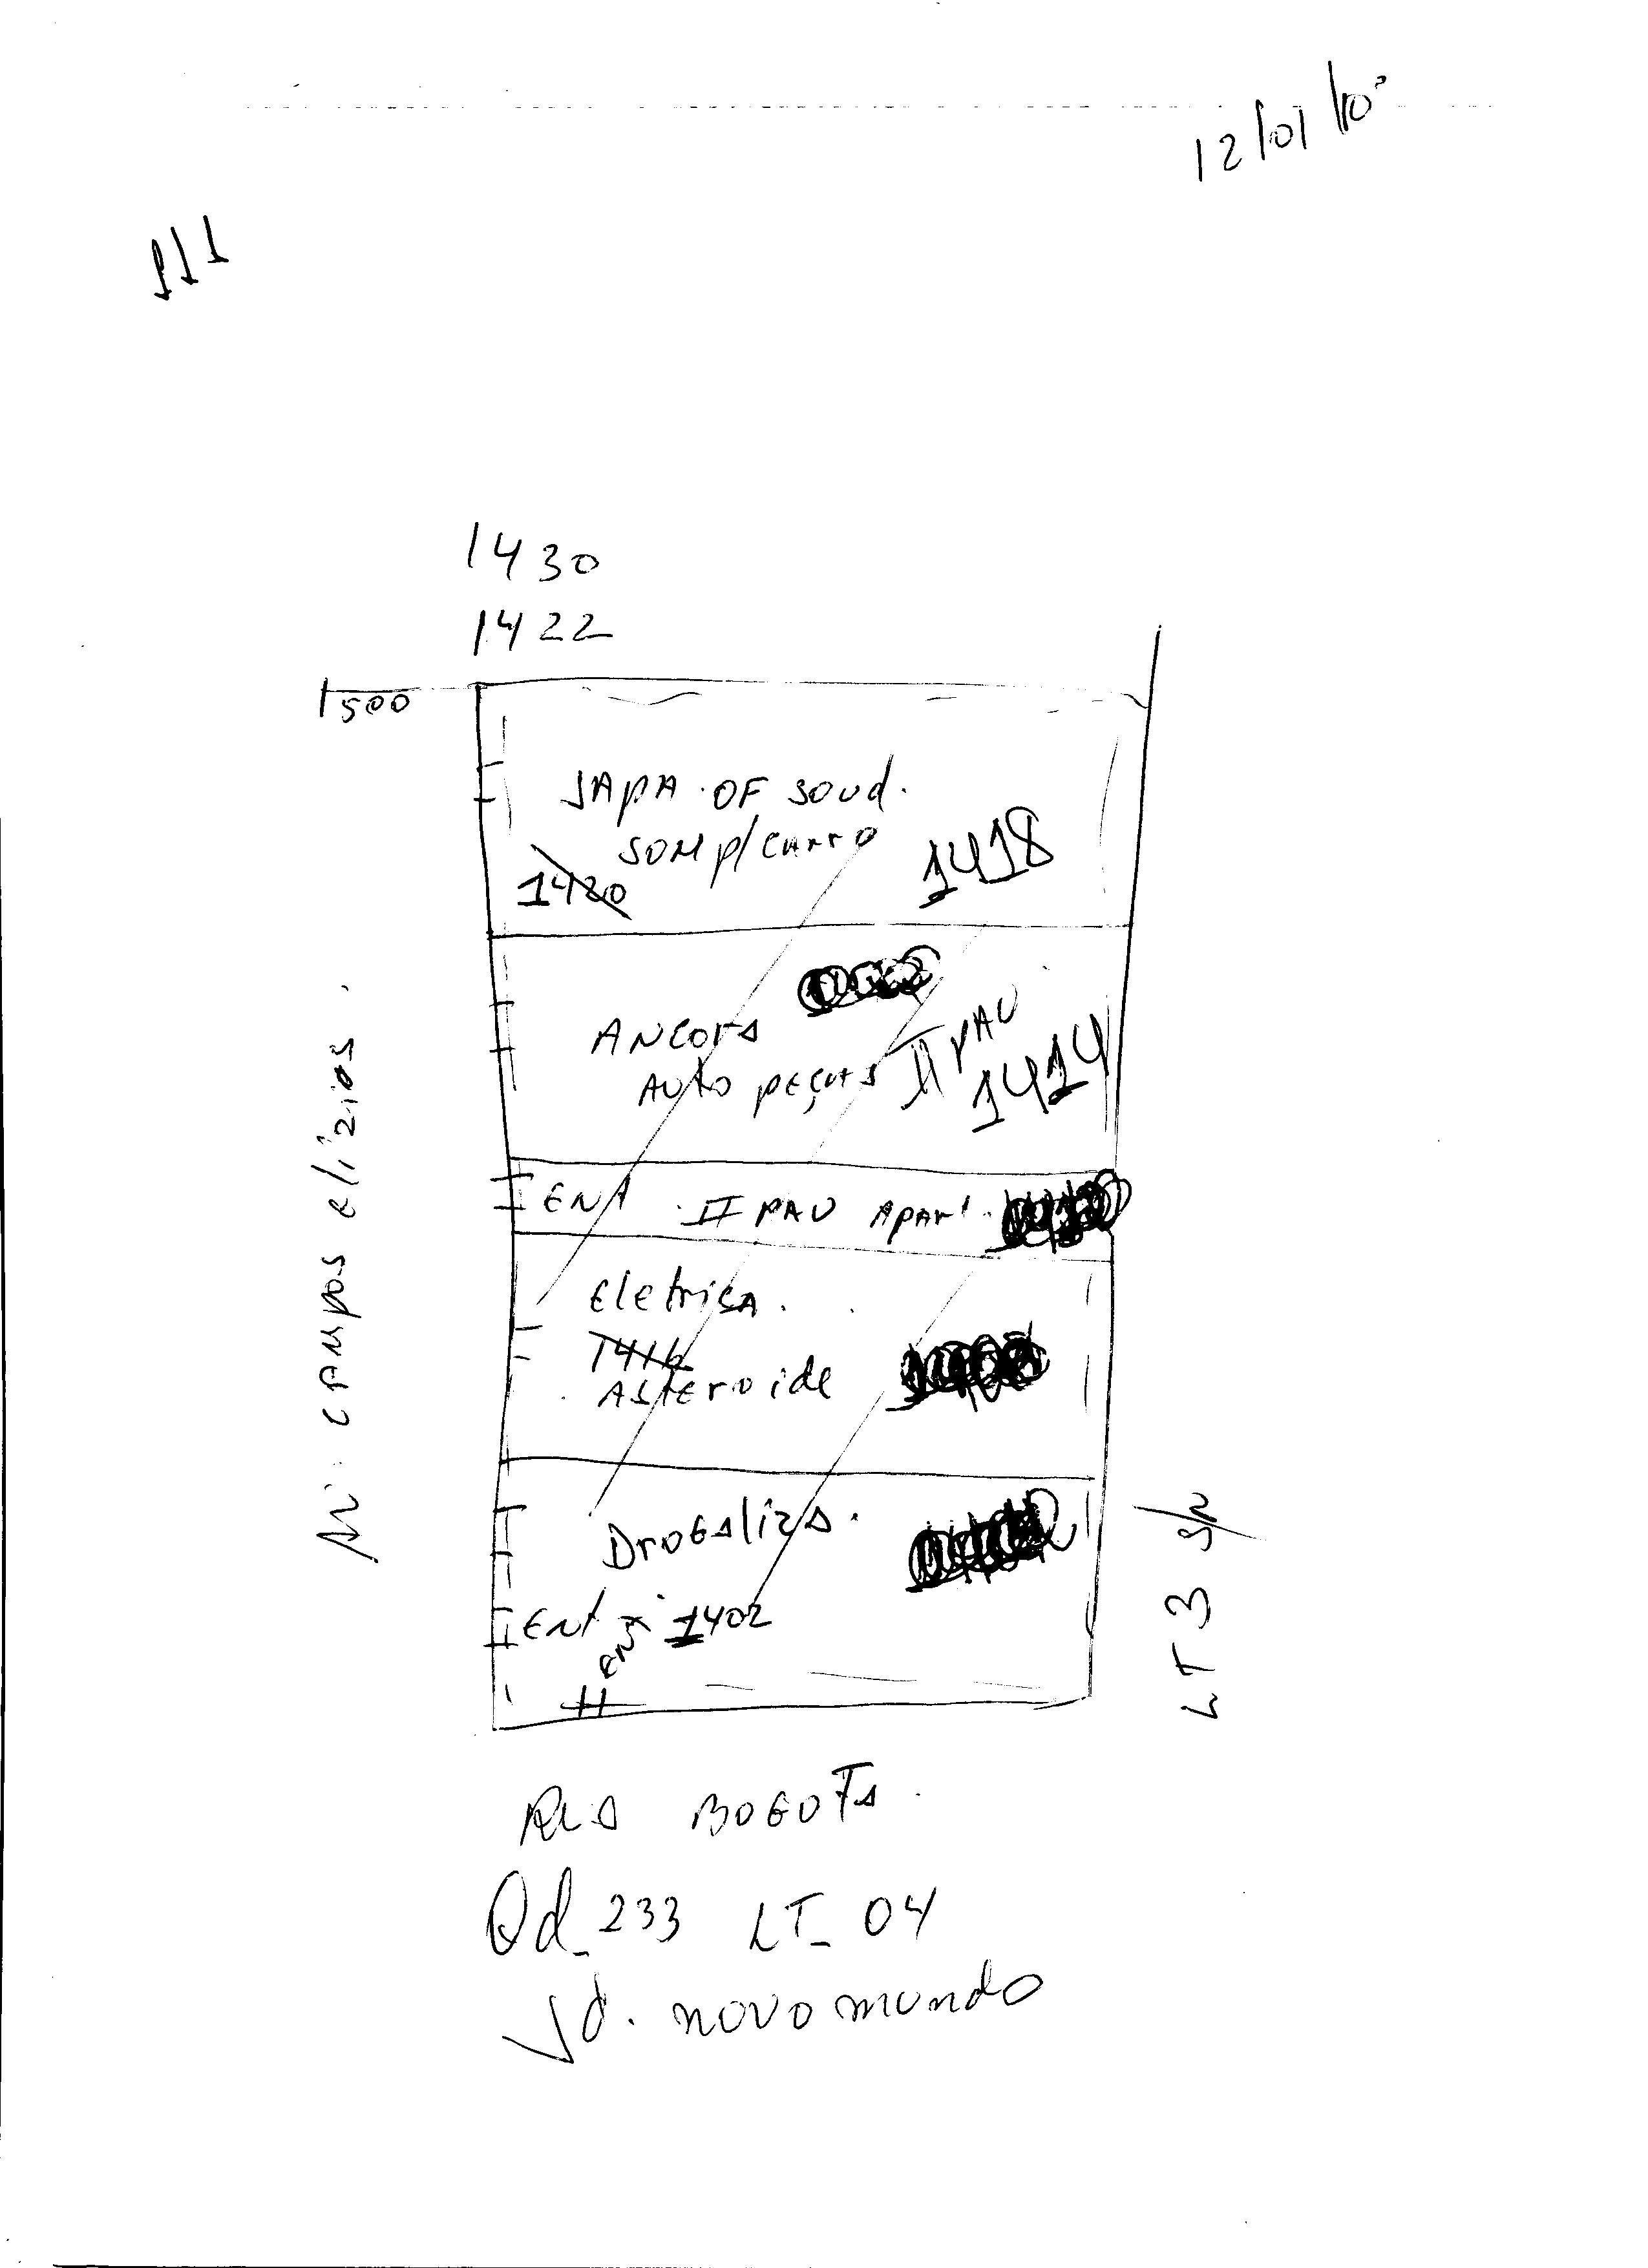 12/01/10
111
1430
1422
1500
JAPA OF SOUD.
SOM P/ CARRO
1420
1418
ANCORA
AUTO PEÇAS
II PAV
1414
ENT II PAV APART.
Eletrica.
1416
ASTEROIDE
Drogaliza.
ENT 1402
ENT
Av: CAMPOS elízios.
LT 3 S/N
RUA BOGOTA.
Qd_233 LT_04
Jd. novo mundo